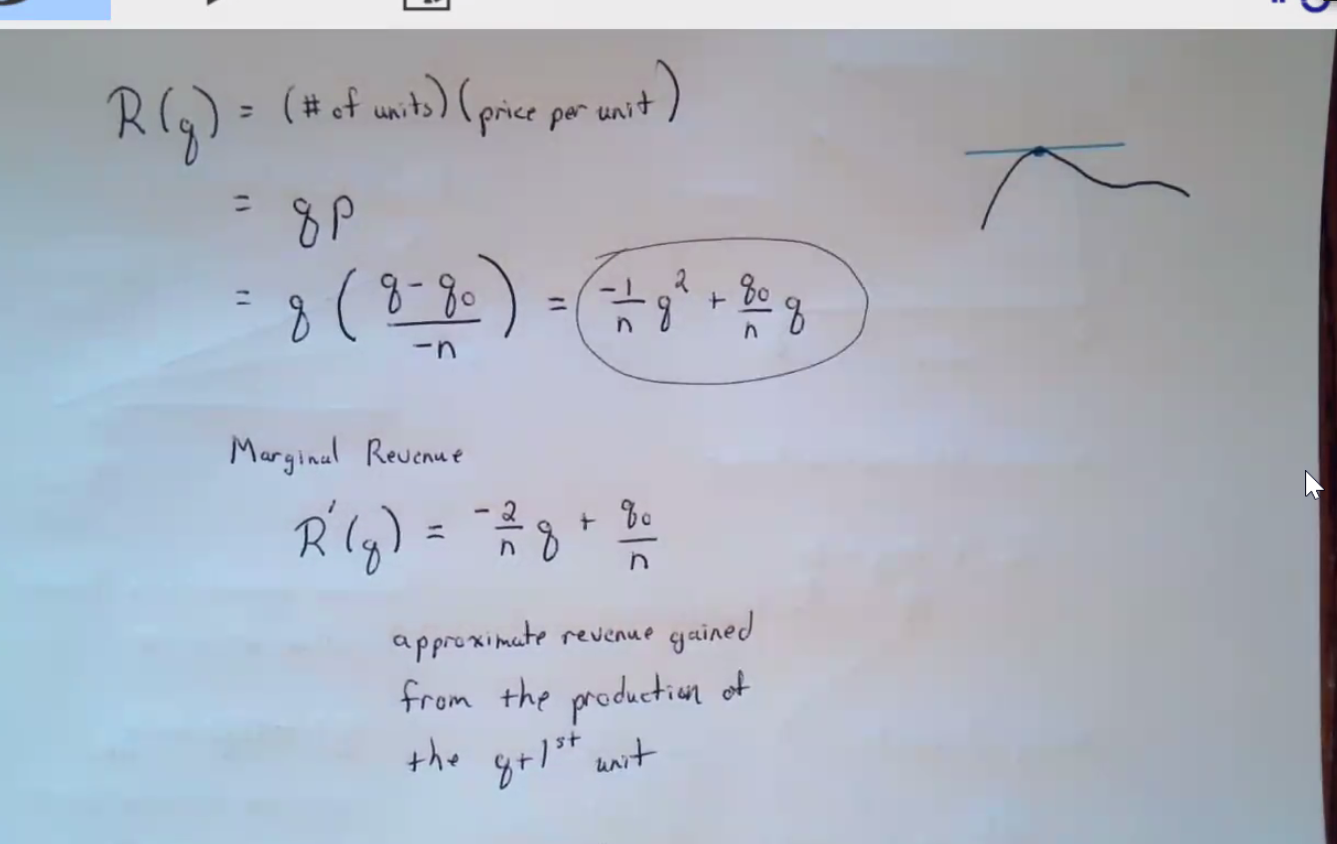 R(q) = (# of units)(price per unit)
= qp
= q ( (q-q₀)/(-n) ) = -1/n q² + q₀/n q
Marginal Revenue
R'(q) = -2/n q + q₀/n
approximate revenue gained
from the production of
the q+1st unit